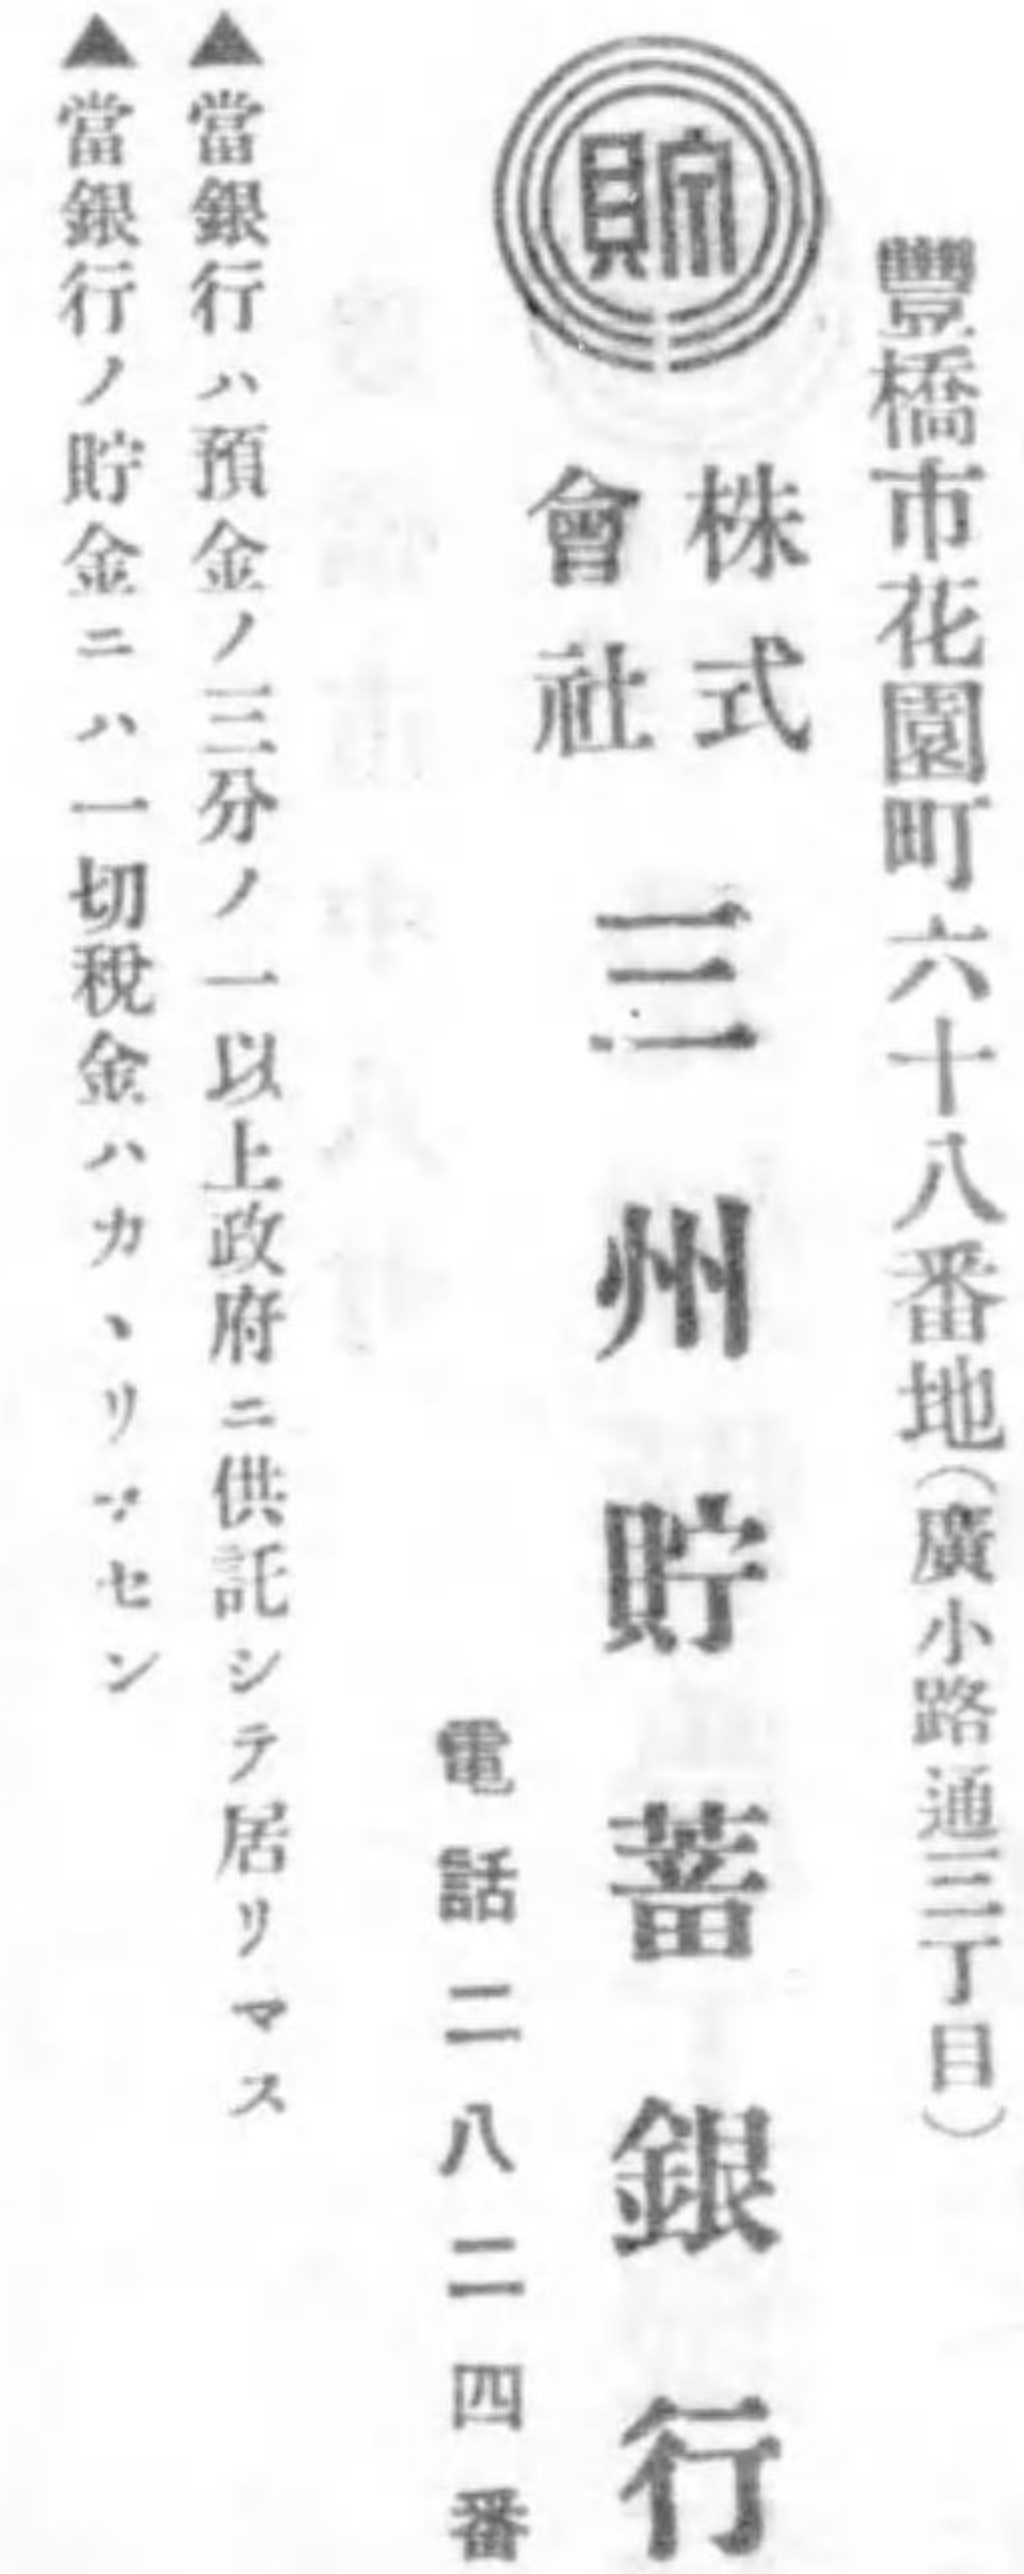 豐橋市花園町六十八番地(廣小路通三丁目)
貯
株式會社 三州貯蓄銀行
電話二八二四番
▲當銀行ハ預金ノ三分ノ一以上政府ニ供託シテ居リマス
▲當銀行ノ貯金ニハ一切稅金ハカヽリマセン